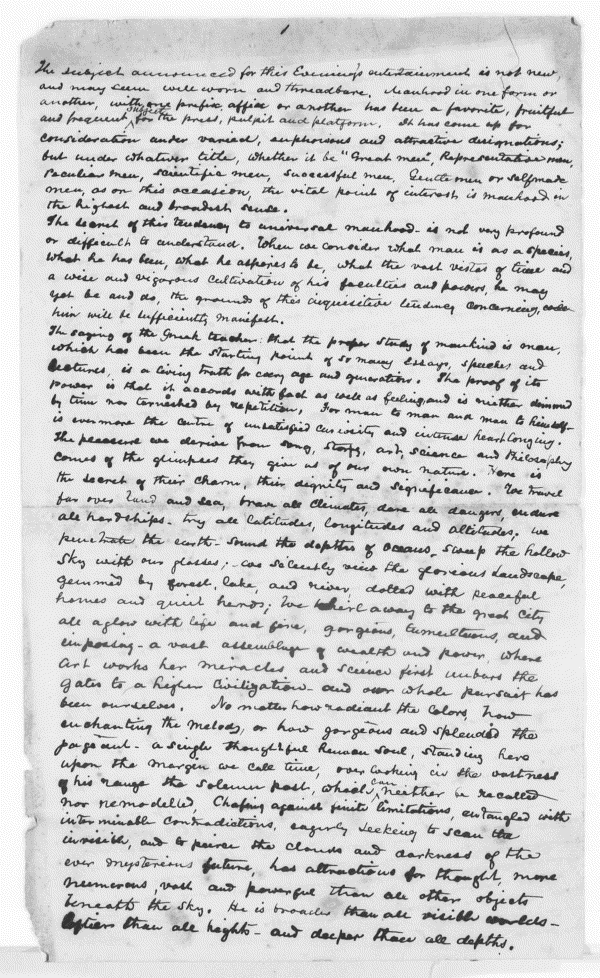 1
The subject announced for this Evening's entertainment is not new,
and may seem well worn and threadbare. Manhood in one form or
another, with one prefix, affix or another has been a favorite, fruitful
and frequent subject for the press, pulpit and platform. It has come up for
consideration under varied, euphonious and attractive designations;
but under whatever title, whether it be "Great men", Representative men,
Peculiar men, scientific men, successful men, Gentlemen or Selfmade
men, as on this occasion, the vital point of interest is manhood in
the highest and broadest sense.
The secret of this tendency to universal manhood - is not very profound
or difficult to understand. When we consider what man is as a species,
what he has been, what he aspires to be, what the vast vistas of time and
a wise and vigorous cultivation of his faculties and powers, he may
yet be and do, the grounds of this inquisitive tendency concerning
him will be sufficiently manifest.
The saying of the Greek teacher: that the proper study of mankind is man,
which has been the starting point of so many Essays, speeches and
Lectures, is a living truth for every age and generation. The proof of its
power is that it accords with fact as well as feeling, and is neither dimmed
by time nor tarnished by repetition. For man to man and man to himself
is evermore the centre of unsatisfied curiosity and intense heart longing.
The pleasure we derive from song, story, art, science and Philosophy
comes of the glimpses they give us of our own nature. Here is
the secret of their charm, their dignity and significance. We travel
far over land and sea, brave all climates, dare all dangers, endure
all hardships - try all latitudes, longitudes and altitudes. We
penetrate the earth - sound the depths of oceans, sweep the hollow
sky with our glasses; - we silently view the glorious Landscape,
gemmed by forest, lake, and river, dotted with peaceful
homes and quiet herds; We whirl away to the great city
all aglow with life and fire, gorgeous, tumultuous, and
imposing - a vast assemblage of wealth and power, where
Art works her miracles and science first unbars the
gates to a higher Civilization - and our whole pursuit has
been ourselves. No matter how radiant the colors, how
enchanting the melody, or how gorgeous and splendid the
pageant - a single thoughtful human soul, standing here
upon the margin we call time, overlooking in the vastness
of his range the solemn past, which can neither be recalled
nor remodelled, Chafing against finite limitations, entangled with
interminable contradictions, eagerly seeking to scan the
invisible, and to pierce the clouds and darkness of the
ever mysterious future, has attractions for thought more
numerous, vast and powerful than all other objects
beneath the sky. He is broader than all visible worlds -
loftier than all heights - and deeper than all depths.